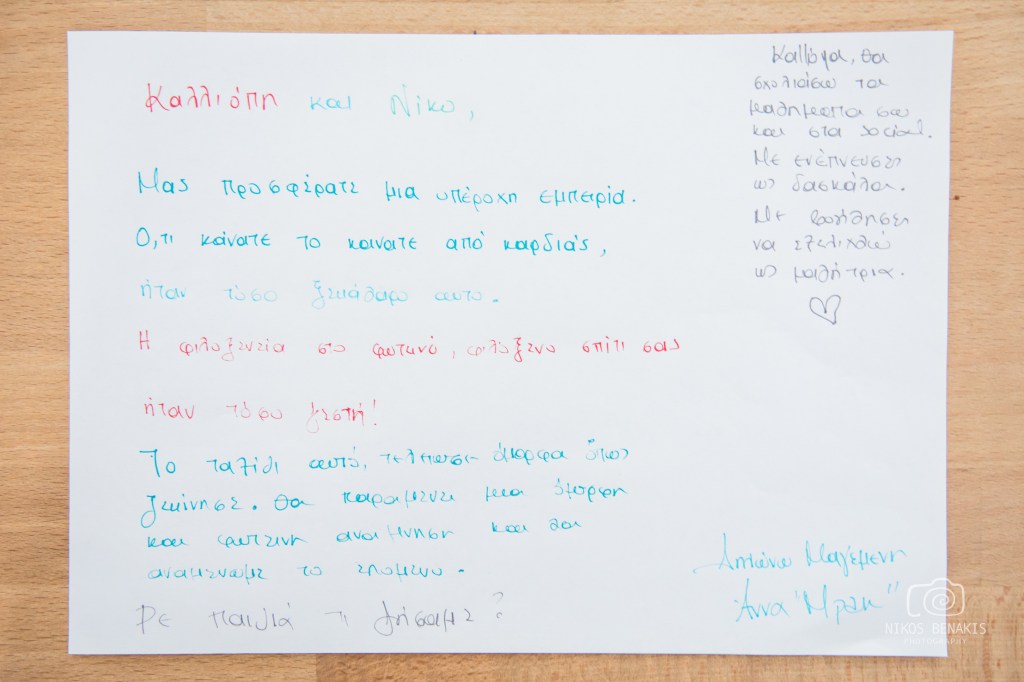 Καλλιόπη και Νίκο,
Μας προσφέρατε μια υπέροχη εμπειρία.
Ό,τι κάνατε το κάνατε από καρδιάς,
ήταν τόσο ξεκάθαρο αυτό.
Η φιλοξενεία στο φωτεινό, φιλόξενο σπίτι σας
ήταν τόσο ζεστή!
Το ταξίδι αυτό, τελείωσε όμορφα όπως
ξεκίνησε. Θα παραμένει μια όμορφη
και φωτεινή ανάμνηση και θα
αναμένωμε το επόμενο.
Ρε παιδιά τι ζήσαμε?
θα
σχολιάσω τα
μαθήματα σου
και στα social.
Με ενέπνευσες
ως δασκάλα.
Με βοήθησες
να εξελιχθώ
ως μαθήτρια.
Άννα
NIKOS BENAKIS
PHOTOGRAPHY